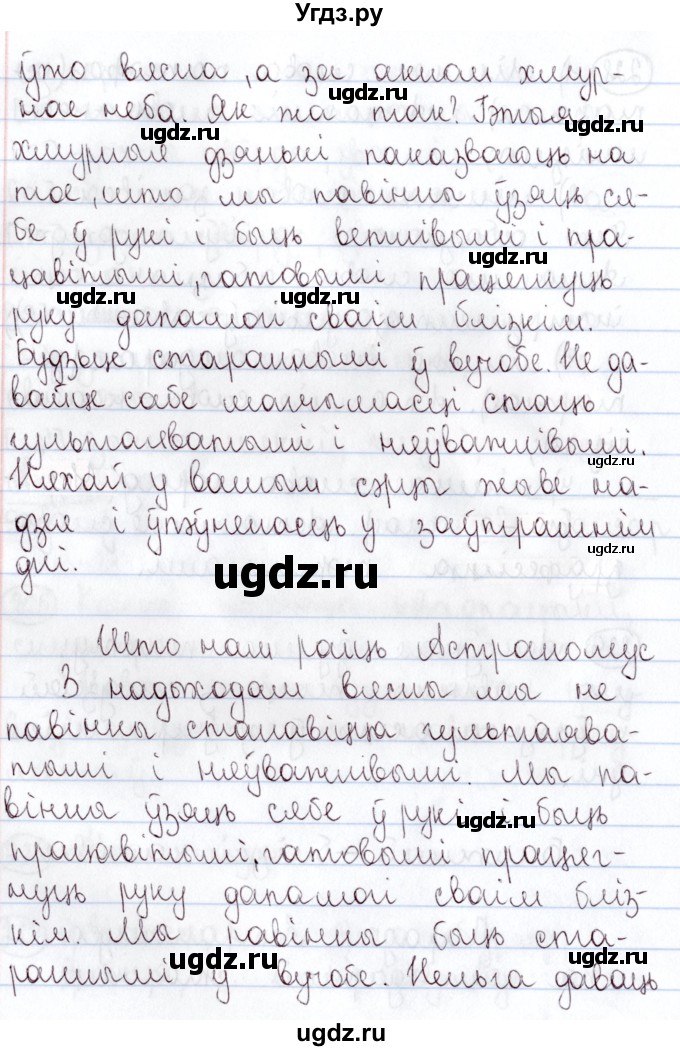 Угдз.ру
ўто вясна, а за акном хмур-
нае неба. Як жа так? Гэтыя
хмурныя дзянькі паказваюць на
тое, што мы павінны ўзяць ся-
бе ў рукі і быць ветлівымі і пра-
цавітымі, гатовымі працягнуць
руку дапамогі сваім блізкім.
Будзьце стараннымі ў вучобе. Не да-
вайце сабе магчымасці стаць
гультаяватымі і няўважлівымі.
Няхай у вашым сэрцы жыве на-
дзея і ўпэўненасць у заўтрашнім
дні.
Што нам раіць Астраномус
З надыходам вясны мы не
павінны станавіцца гультаява-
тымі і няўважлівымі. Мы па-
вінны ўзяць сябе ў рукі і быць
працавітымі, гатовымі працяг-
нуць руку дапамогі сваім бліз-
кім. Мы павінны быць ста-
раннымі ў вучобе. Нельга даваць
ugdz.ru
ugdz.ru
ugdz.ru
ugdz.ru
ugdz.ru
ugdz.ru
ugdz.ru
ugdz.ru
ugdz.ru
ugdz.ru
ugdz.ru
ugdz.ru
ugdz.ru